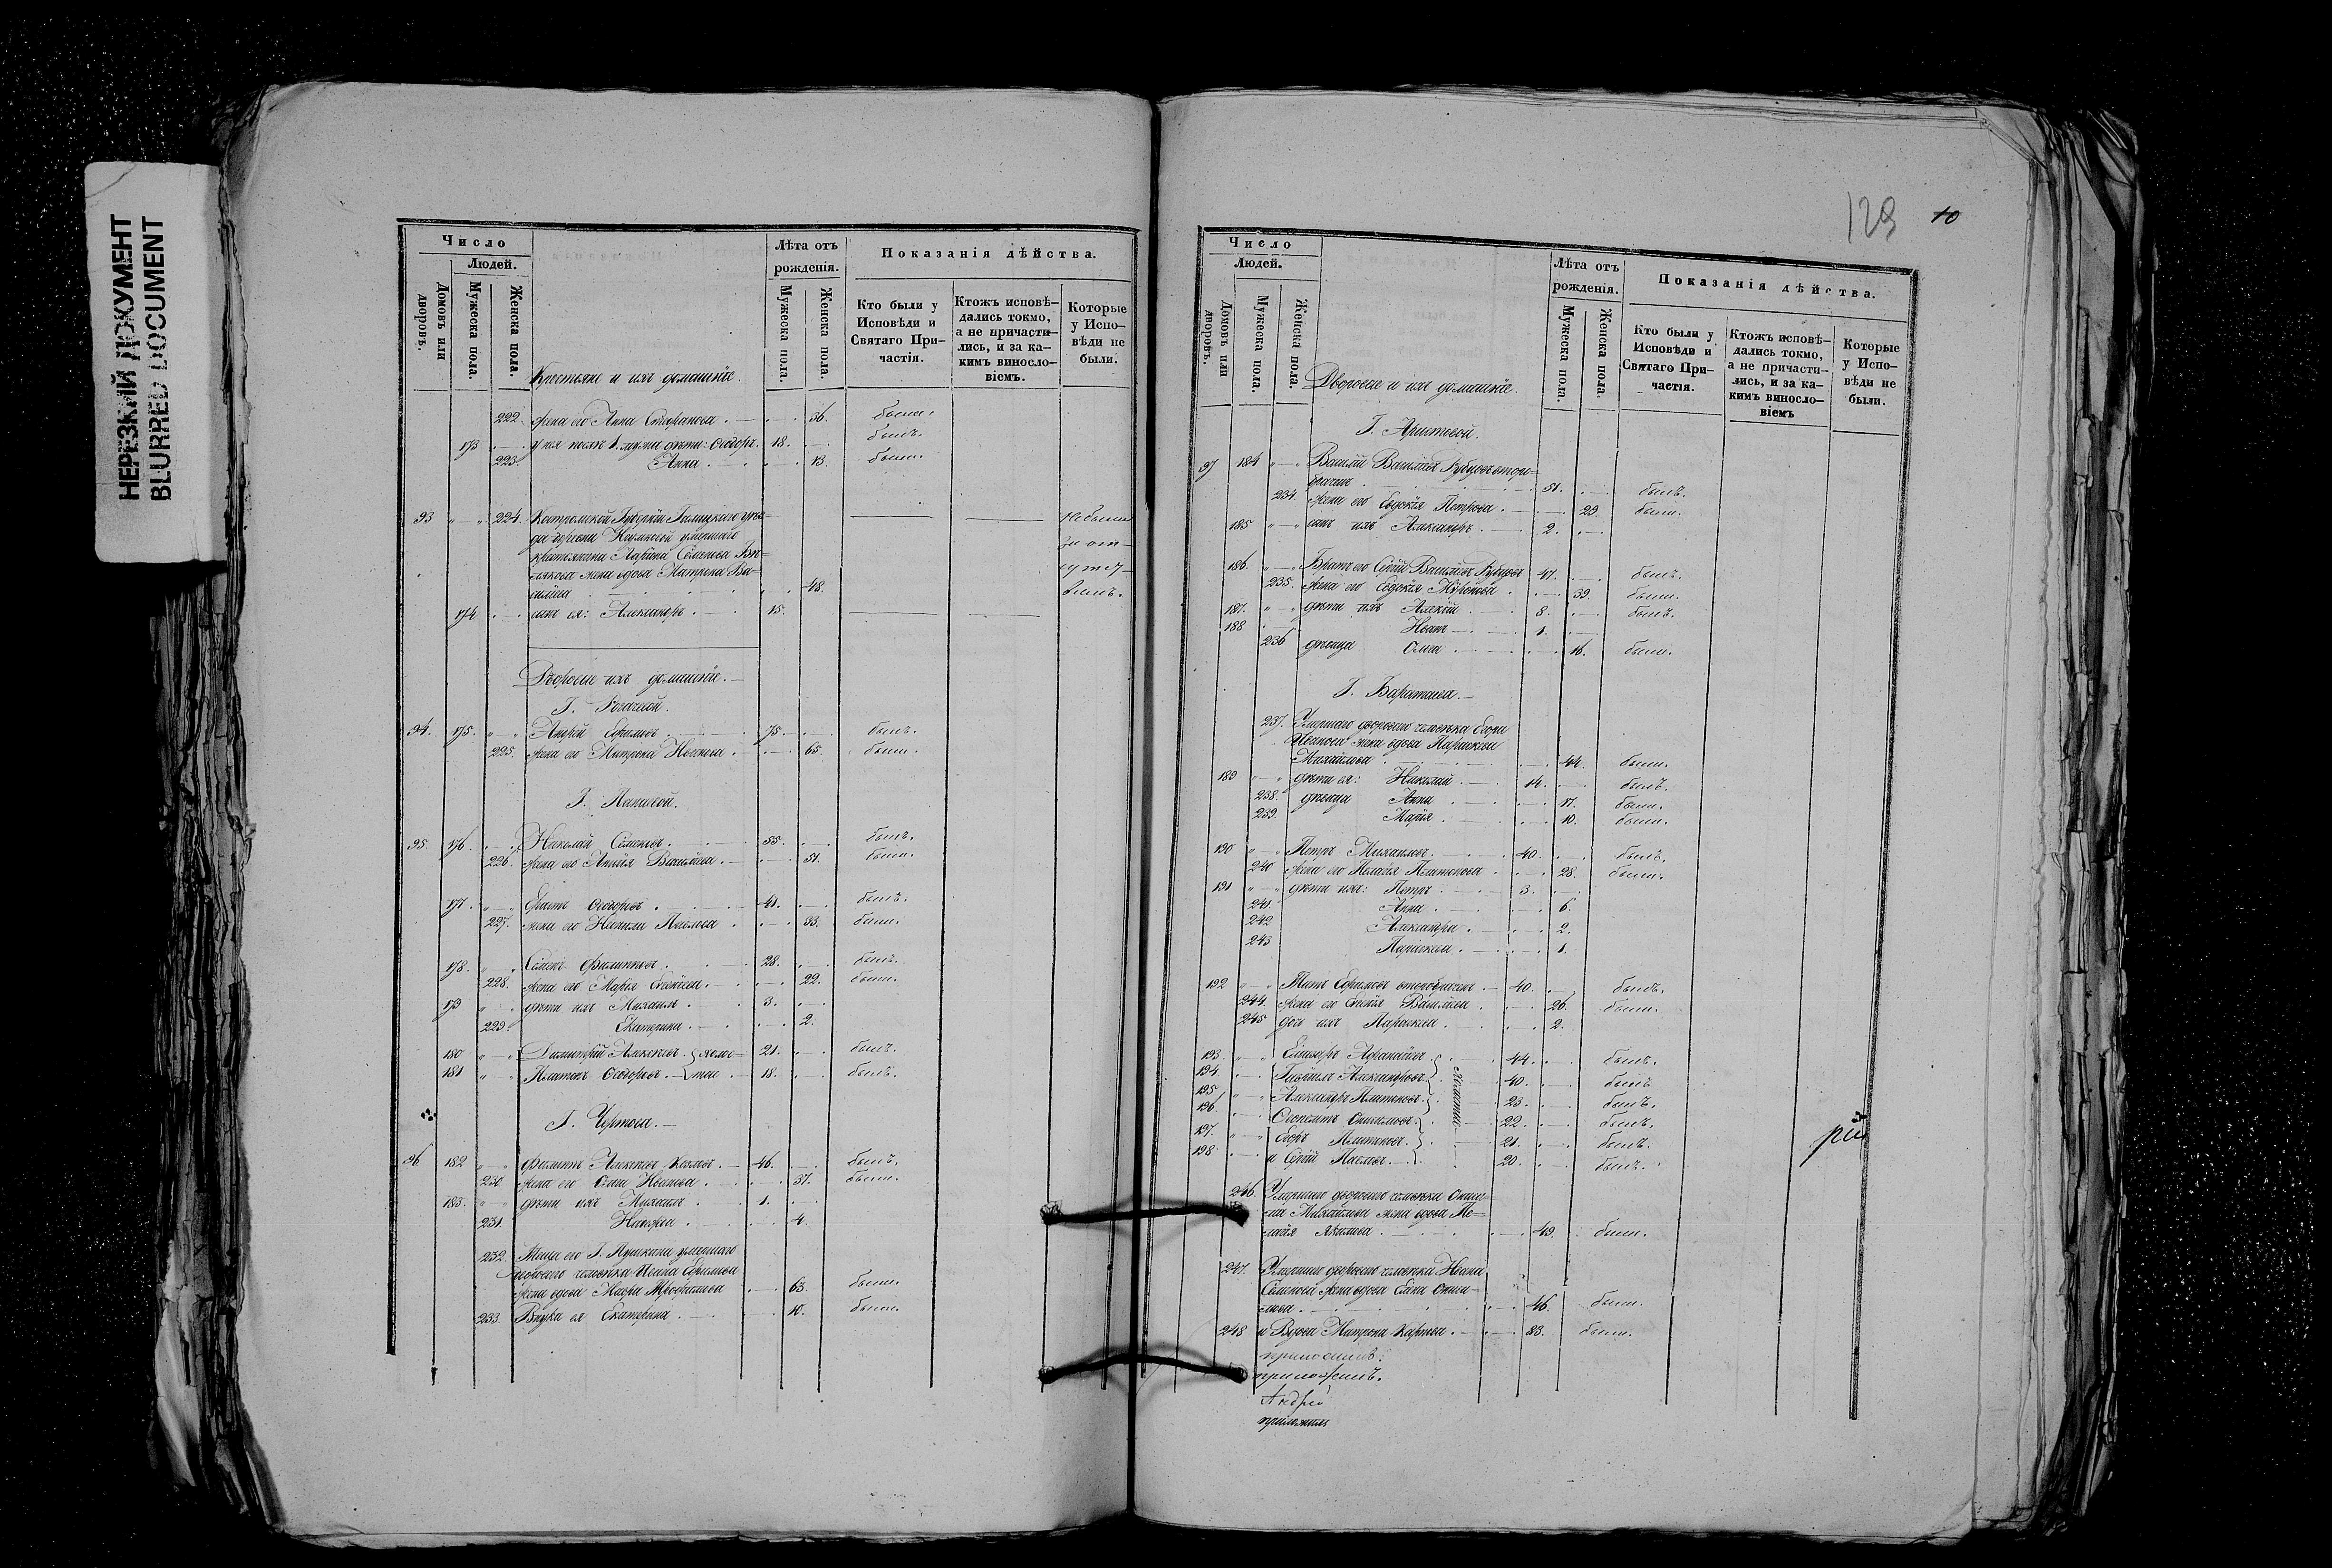 НЕРЕЗКИЙ ДОКУМЕНТ
BLURRED DOCUMENT
Число
Людей.
Домовъ или дворовъ.
Мужеска пола.
Женска пола.
Крестьяне и ихъ домашніе.
Лѣта отъ рожденія.
Мужеска пола.
Женска пола.
Показанія дѣйства.
Кто были у Исповѣди и Святаго Причастія.
Ктожъ исповѣдались токмо, а не причастились, и за какимъ винословіемъ.
Которые у Исповѣди не были.
222. жена его Анна Стефанова . 36. были.
173 у нея дѣти: Ѳеодоръ. 18. былъ.
223. Анна . 13. были.
93 " " 224. Костромской Губерніи Галицкаго уѣз=
да деревни умершаго
крестьянина Семенова
жена вдова Матрона Ва=
сильева 48.
не были
за от-
174 сынъ ея: Александръ . 15.
Дворовые ихъ домашніе.
Г.
94. 175. " " Андрей Ефимовъ . 75. былъ.
225. жена его Матрона Иванова 65. были.
Г.
95. 176. Николай Семеновъ . 55. былъ.
226. жена его Васильева 51. были.
177. " " Ѳеодоровъ . 41. былъ.
227. жена его Павлова . 33. были.
178. " " Семенъ Филиповъ . 28. былъ.
228. жена его Марія 22. были.
179 " " дѣти ихъ Михаилъ . 3.
229. Екатерина . 2.
180 " " Димитрій Алексѣевъ . холо= 21. былъ.
181 " " Платонъ Ѳеодоровъ . стые 18. былъ.
Г. Чертова.
96 182 " " Филиппъ Алексѣевъ 46. былъ.
230 жена его Иванова . 37. были.
183. " " дѣти ихъ Михаилъ . 1.
231. 4.
232. Теща его Г. Пушкина умершаго
дворового человѣка Ивана Ефимова
жена вдова Мавра 63. были.
233. Внука ея Екатерина . 10. были.
129
10
Число
Людей.
Домовъ или дворовъ.
Мужеска пола.
Женска пола.
Дворовые и ихъ домашніе.
Лѣта отъ рожденія.
Мужеска пола.
Женска пола.
Показанія дѣйства.
Кто были у Исповѣди и Святаго Причастія.
Ктожъ исповѣдались токмо, а не причастились, и за какимъ винословіемъ
Которые у Исповѣди не были.
Г. Аристовой.
97 184 " " Василій Васильевъ втор=
брачные . 51. былъ.
234. жена его Евдокія Петрова . 29. были.
185 " " сынъ ихъ Александръ . 2.
186. " " Братъ его Сергій Васильевъ 47. былъ.
235. жена его Евдокія 39. были.
187. " " дѣти ихъ Алексѣй 8. былъ.
188 Иванъ 1.
236 дѣвица Ольга 16. были.
Г. Баратаева.
237. Умершаго дворового человѣка Егора
Иванова жена вдова Параскева
Михайлова . 44. были.
189 " " дѣти ея: Николай . 14. былъ.
238. дѣвица Анна . 17. были.
239. Марія . 10. были.
190 " " Петръ Михайловъ . 40. былъ.
240 жена его Пелагія Платонова 28. были.
191 " " дѣти ихъ: Петръ 3.
241. Анна . 6.
242 Александра 2.
243 Параскева . 1.
192 " " Титъ Ефимовъ второбрачен. 40. былъ.
244. жена его Васильева 26. были.
245 дочь ихъ Параскева . 2.
193. " " Афанасьевъ 44. былъ.
194. Гавріилъ Александровъ 40. былъ
195 " " Александръ Платоновъ. 23. былъ.
196. Ѳеоктистъ 22. былъ.
197. " " Егоръ Платоновъ. 21. былъ.
198 и Сергій Павловъ. 20. былъ.
холосты
246. Умершаго дворового человѣка
Михайлова жена вдова Пе=
лагія 49. были.
247. Умершаго дворового человѣка Ивана
Семенова жена вдова Елена
46. были.
248 и Вдова Матрона Карпова . 83. были.
приложилъ.
Андрей
приложилъ
рій